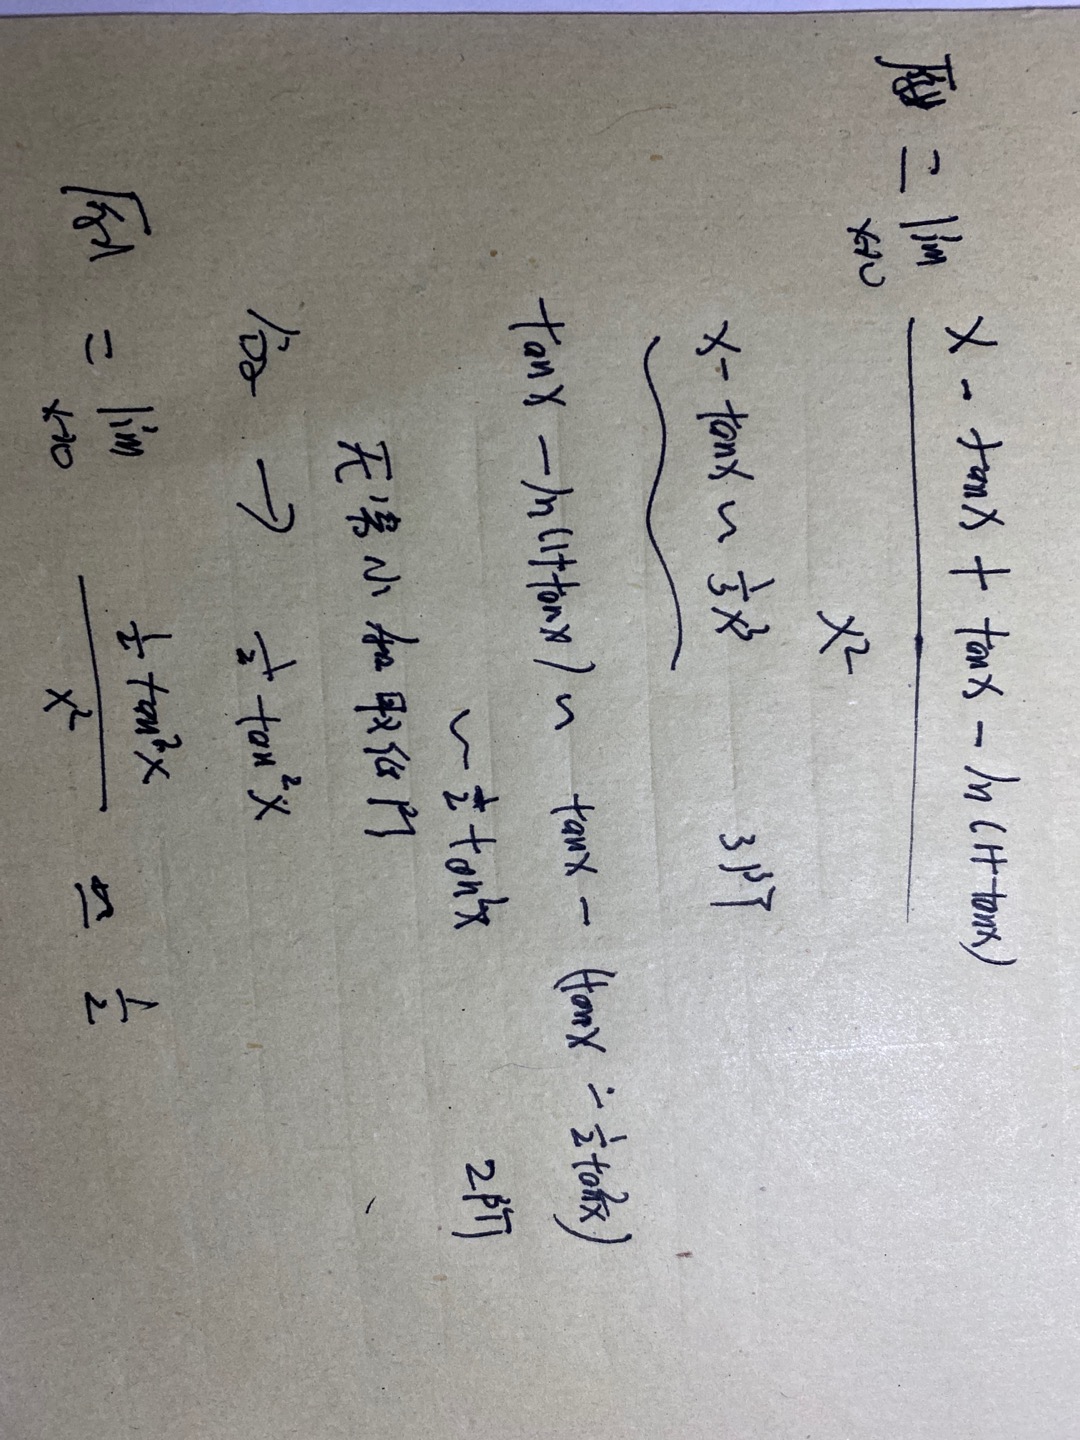 原式 = lim x→0 (x - tanx + tanx - ln(1+tanx)) / x²
x - tanx ~ 1/3 x³ 3阶
tanx - ln(1+tanx) ~ tanx - (tanx - 1/2 tan²x)
~ 1/2 tan²x 2阶
无穷小 加 取低阶
→ 1/2 tan²x
原式 = lim x→0 (1/2 tan²x) / x² = 1/2